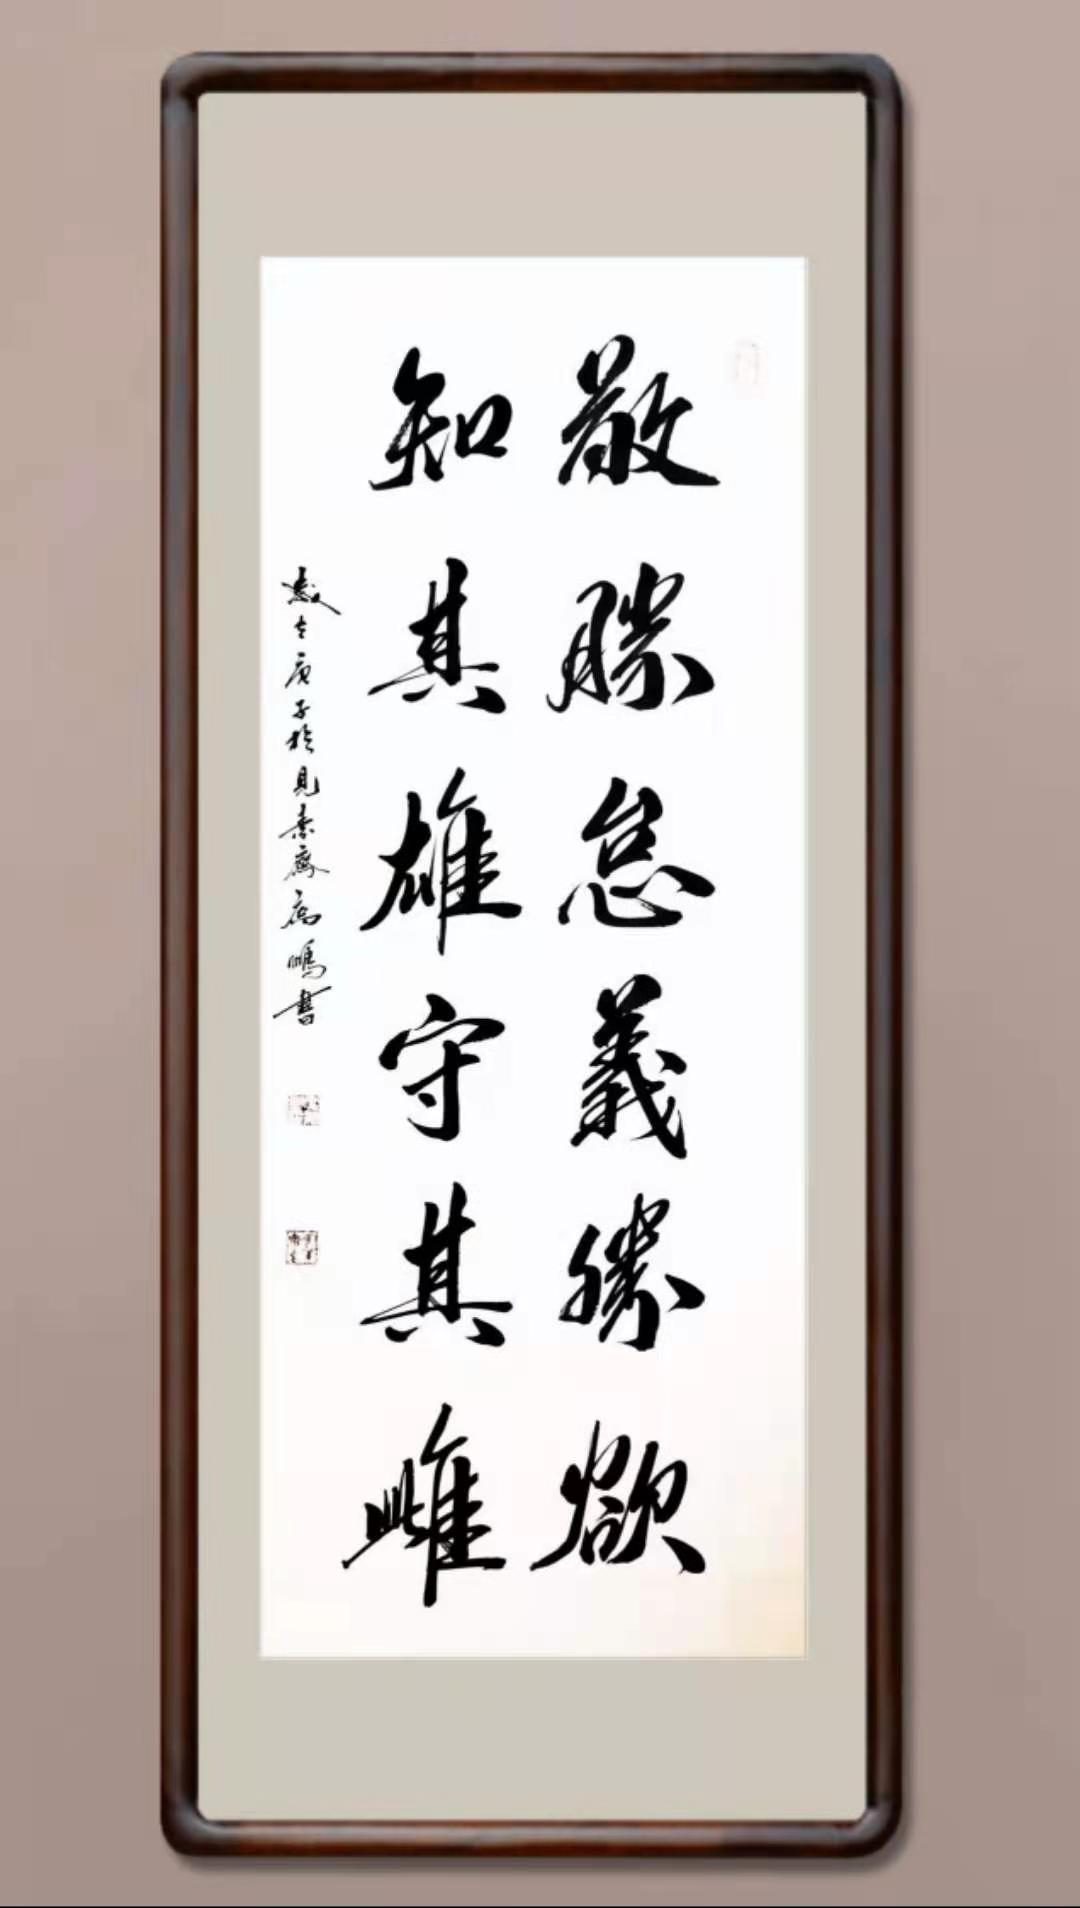 敬勝怠義勝欲
知其雄守其雌
歲在庚子於見素齋高鵬書